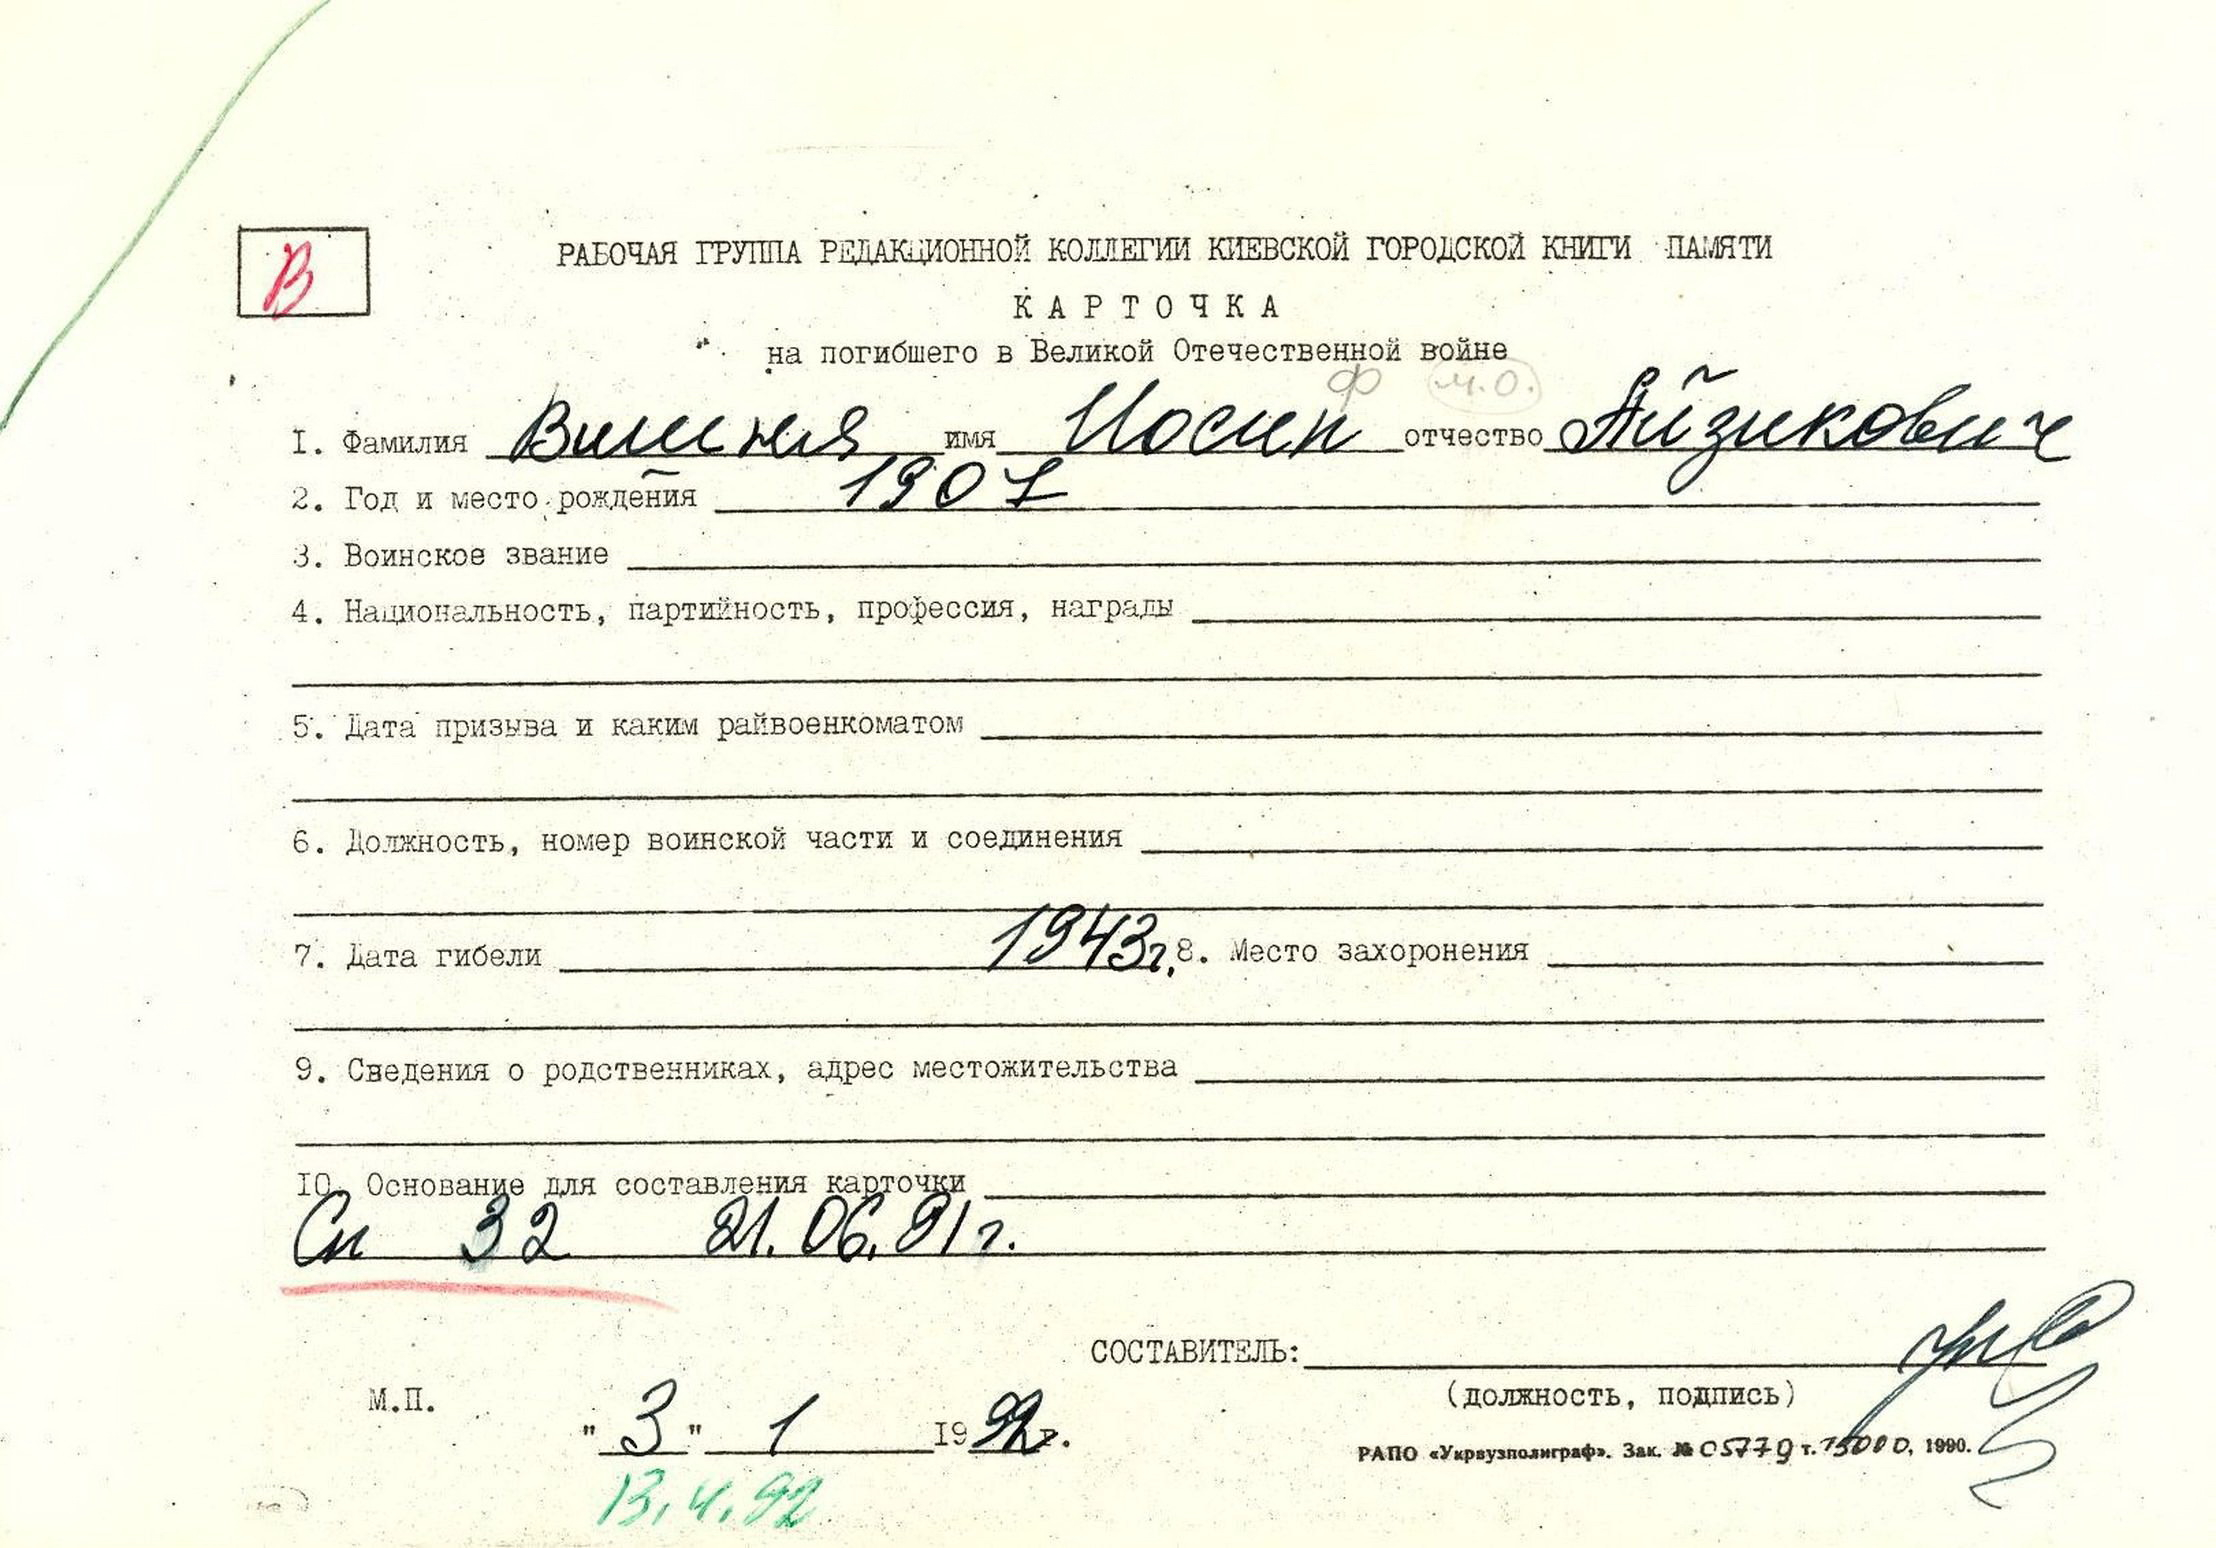 В
РАБОЧАЯ ГРУППА РЕДАКЦИОННОЙ КОЛЛЕГИИ КИЕВСКОЙ ГОРОДСКОЙ КНИГИ ПАМЯТИ
КАРТОЧКА
на погибшего в Великой Отечественной войне
ф м.о.
1. Фамилия Вишня имя Иосип отчество Айзикович
2. Год и место рождения 1907
3. Воинское звание
4. Национальность, партийность, профессия, награды
5. Дата призыва и каким райвоенкоматом
6. Должность, номер воинской части и соединения
7. Дата гибели 1943г. 8. Место захоронения
9. Сведения о родственниках, адрес местожительства
10. Основание для составления карточки
Сп 32 21.06.91г.
СОСТАВИТЕЛЬ:
(должность, подпись)
М.П.
"3" 1 1992г.
РАПО «Укрвузполиграф». Зак. № 05779 т. 15000, 1990.
13.4.92